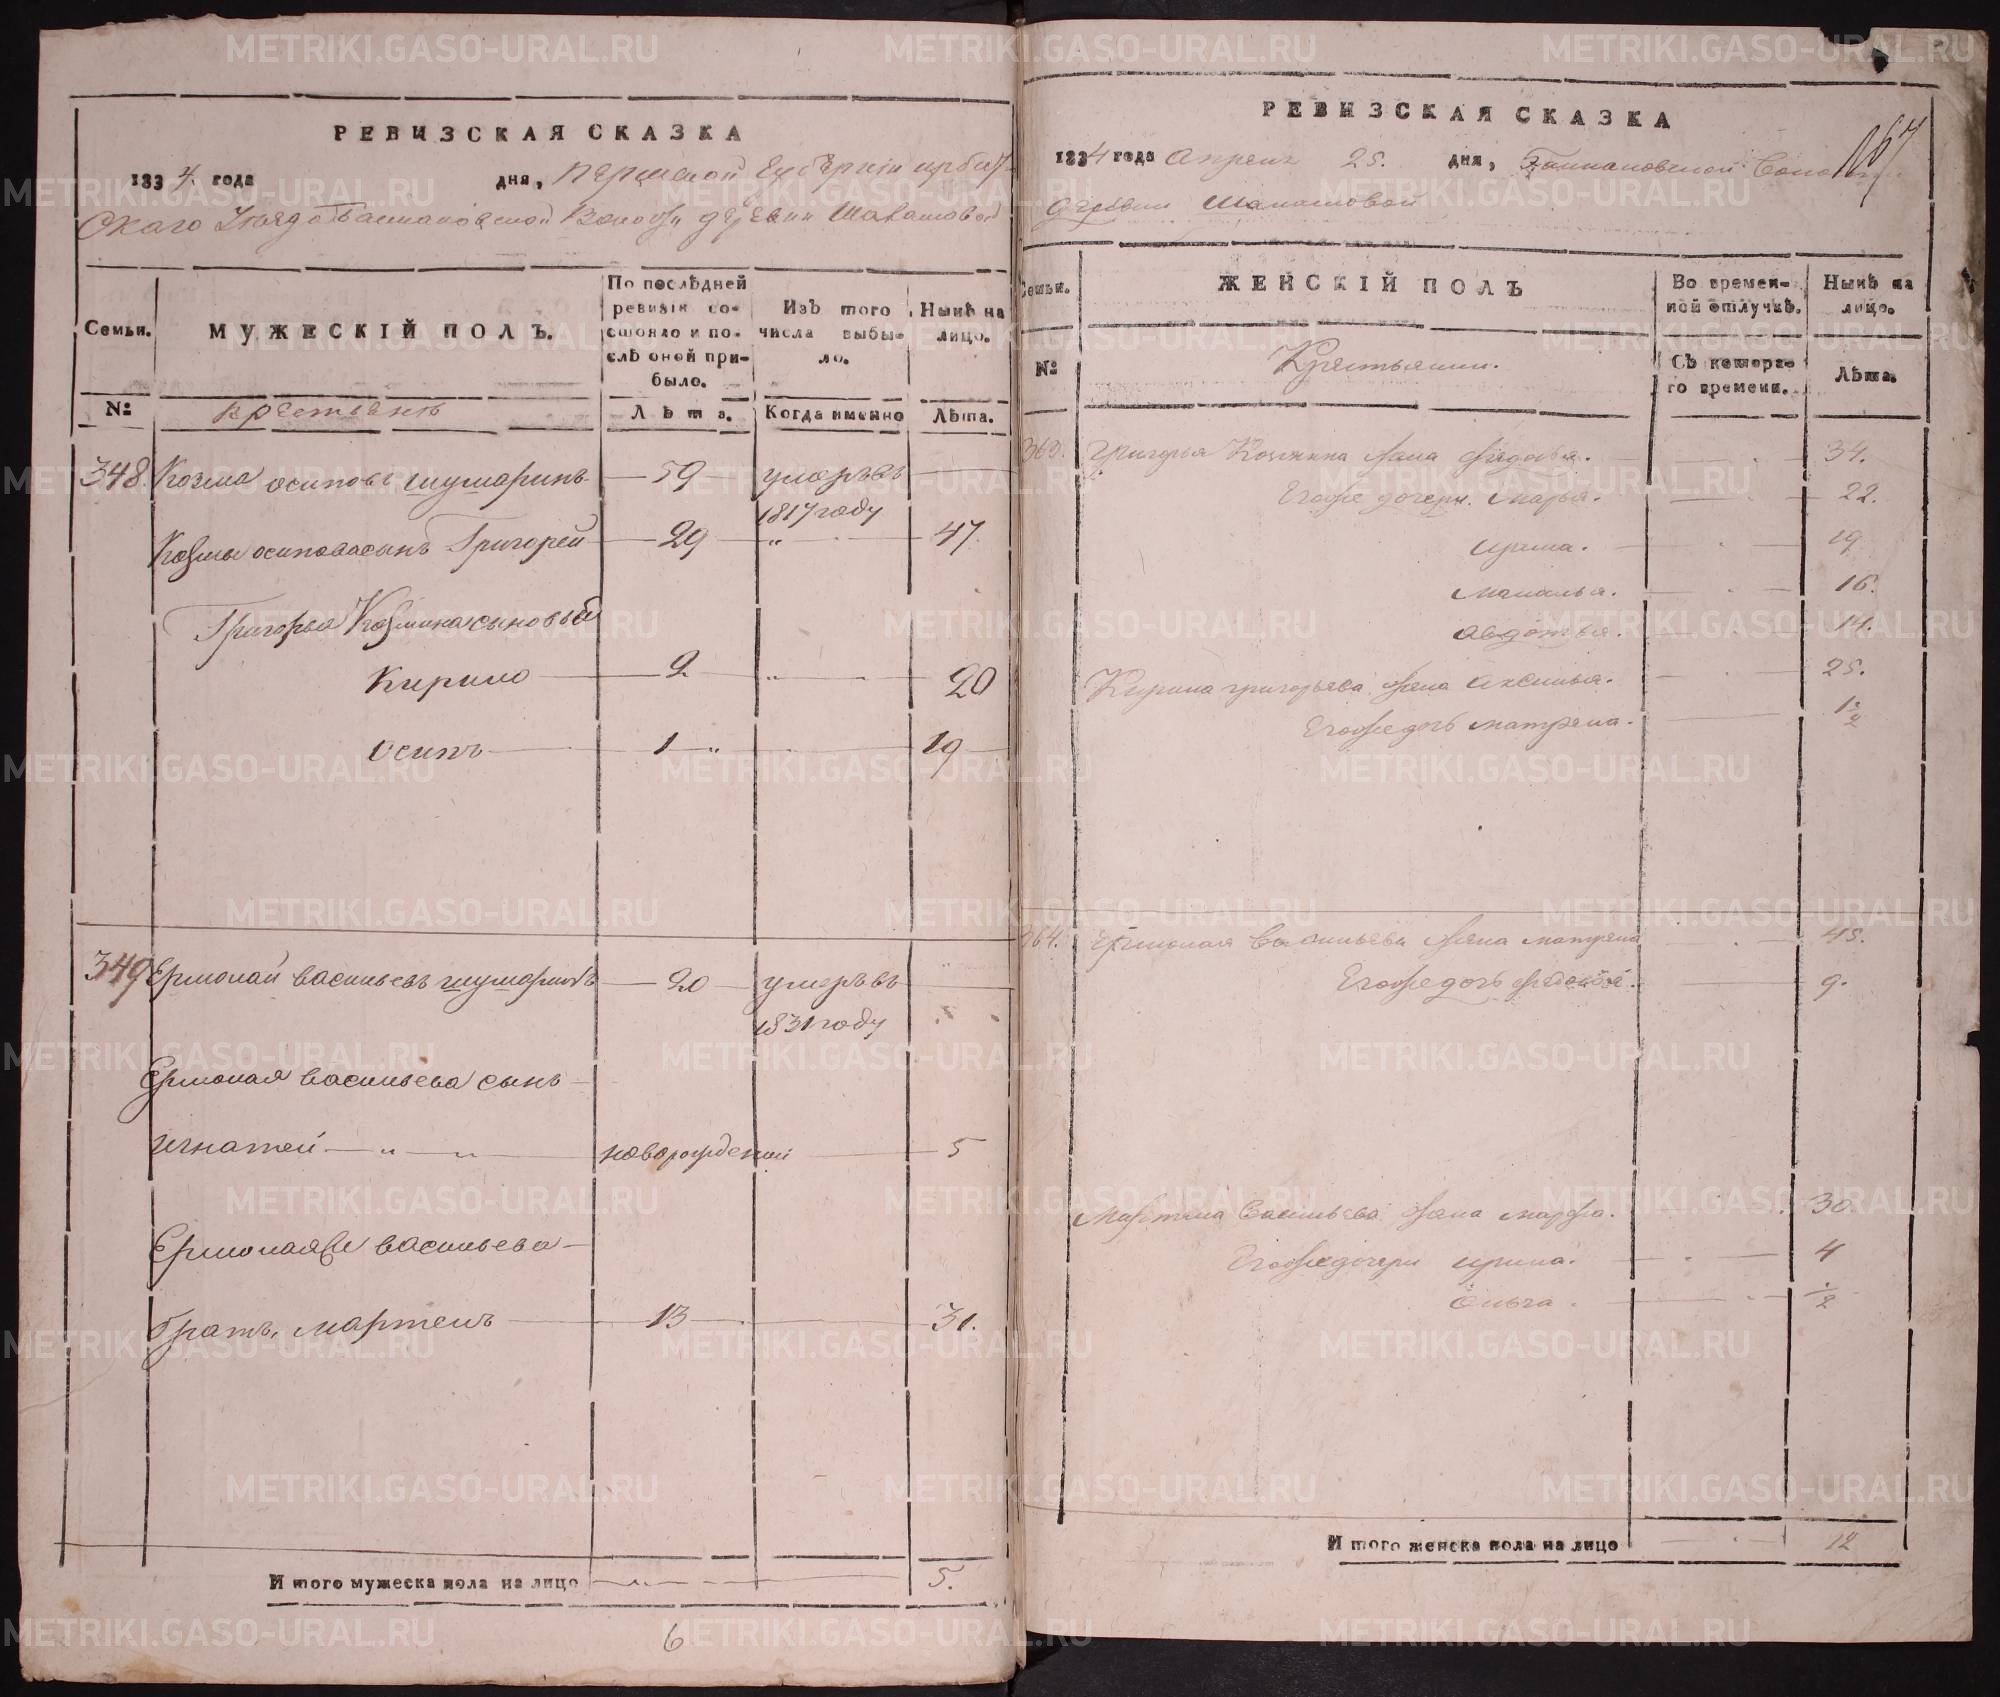 РЕВИЗСКАЯ СКАЗКА
1834 года дня, пермской Губернiи ирбит
Скаго Уезда Волости деревни
Семьи.
МУЖЕСКІЙ ПОЛЪ.
По послѣдней ревизіи состояло и послѣ оной прибыло.
Изъ того числа выбыло.
Нынѣ на лицо.
№
крестьяне
Лѣта.
Когда именно
Лѣта.
348. Козма осиповъ шумаринъ 59 умеръ въ
1817 году
Козмы осипова сынъ Григорей 29 " 47.
Григорья Козмина сыновья
Кирило 2 " 20
осипъ 1 " 19
349 Ермолай васильевъ шумаринъ 20 умеръ въ
1831 году
Ермолая васильева сынъ
игнатей " " новорожденной 5
Ермолая васильева
братъ, мартенъ 13 31.
Итого мужеска пола на лицо " 5.
6
РЕВИЗСКАЯ СКАЗКА
1834 года Апреля 25. дня, Волости
деревни
Семьи.
ЖЕНСКІЙ ПОЛЪ
Во временной отлучкѣ.
Нынѣ на лицо.
№
Крестьянии.
Съ котораго времени.
Лѣта.
363. Григорья Козмина жена Федосья. 34.
Егоже дочери. Марья. 22.
ирина. 19
16.
Авдотья. 14.
Кирила григорьева жена Аксинья. 25.
Егоже дочь матрена. 1 1/2
364. Ермолая Васильева жена матрена 45.
Егоже дочь 9.
Мартина Васильева жена марфа. 30
Егоже дочери ирина. 4
Ольга. 1/2
Итого женска пола на лицо 12
METRIKI.GASO-URAL.RU